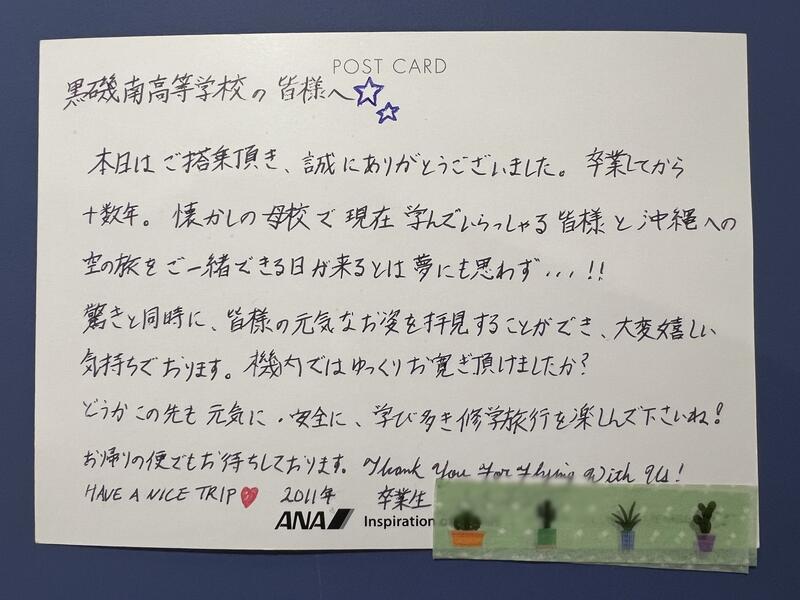 POST CARD
黒磯南高等学校の皆様へ☆☆
本日はご搭乗頂き、誠にありがとうございました。卒業してから
十数年。懐かしの母校で現在学んでいらっしゃる皆様と沖縄への
空の旅をご一緒できる日が来るとは夢にも思わず...!!
驚きと同時に、皆様の元気なお姿を拝見することができ、大変嬉しい
気持ちでおります。機内ではゆっくりお寛ぎ頂けましたか?
どうかこの先も元気に・安全に、学び多き修学旅行を楽しんで下さいね!
お帰りの便でもお待ちしております。Thank You For Flying With Us!
HAVE A NICE TRIP♥ 2011年 卒業生
ANA Inspiration